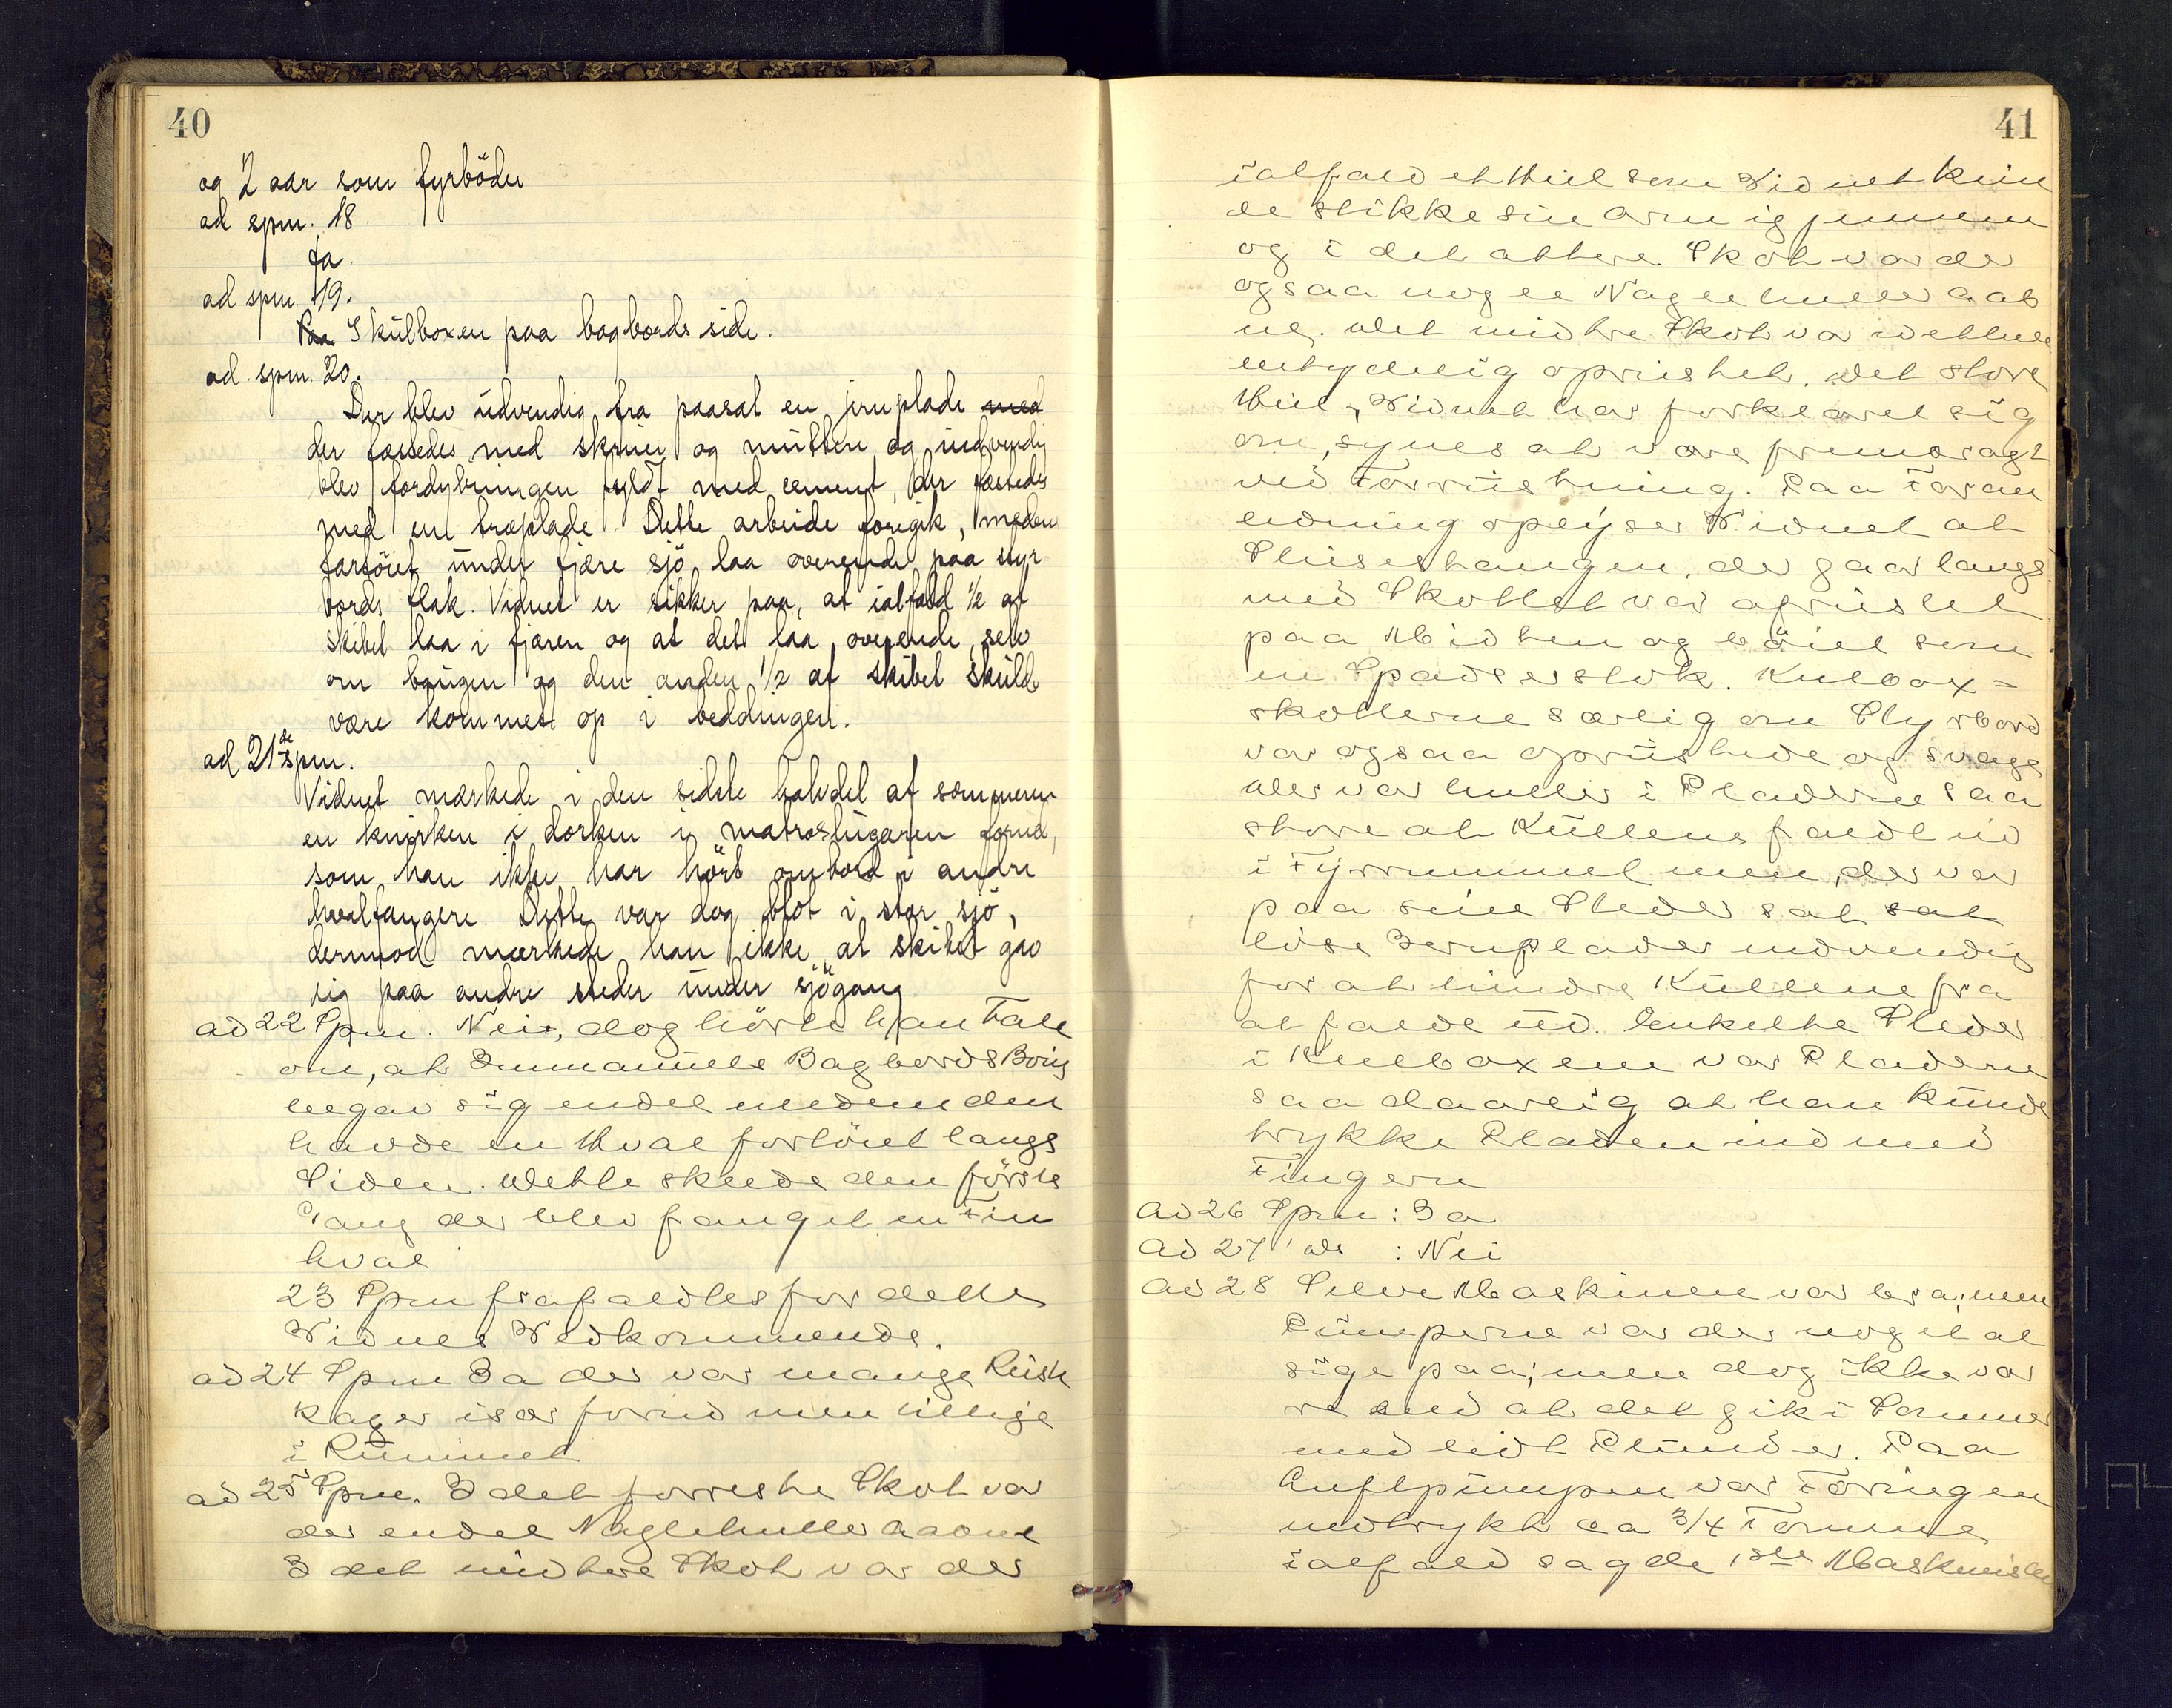 40
og 2 aar som fyrböder
ad spm. 18
Ja.
ad spm. 19.
Paa I külboxen paa bagbords side.
ad spm. 20.
Der blev üdvendig fra paasat en jernplade med
der fæstedes med skruer og mütter, og indvendig
blev fordybningen fyldt med cement, der fæstedes
med en træplade. Dette arbeide foregik, meden
fartöiet ünder fjære sjö laa overende paa styr
bords flak. Vidnet er sikker paa, at ialfald ½ af
skibet laa i fjæren og at det laa overende, selv
om baugen og den anden ½ af skibet skülde
være kommet op i beddingen.
ad 21de spm.
Vidnet mærkede i den sidste halvdel af sommeren
en knirken i dørken i matroslügaren forüd,
som han ikke har hört ombord i andre
hvalfangere. Dette var dog blot i stor sjö,
derimod mærkede han ikke at skibet gav
sig paa andre steder ünder sjögang
ad 22 Spm. Nei, dog hörte han Tale
om, at Immanüels Bagbords Boug
begav sig endel medens den
havde en Hval fortöiet langs
Siden. Dette skeede den förste
Gang der blev fanget en Fin
hval
23 Spm frafaldtes for dette
Vidnes Vedkommende.
ad 24 Spm Ja der var mange Rüst
kager især forüd men tillige
i Rümmet
ad 25 Spm. I det forreste Skot var
der endel Naglehuller aabne
I det midtre Skot var der
41
ialfald et Hül som Vidnet kün
de stikke sin Arm igjennem
og i det aktere Skot var der
ogsaa nogle Naglehuller aab
ne. Det midtre Skot var idethele
betydelig oprüstet. Det store
Hül, Vidnet har forklaret sig
om, synes at være frembragt
ved Forrüstning. Paa Foran
ledning oplyser Vidnet at
Slüsestangen, der gaar langs
med Skottet var afrüstet
paa Midten og böiet som
en Spadserstok. Kulbox=
skotterne særlig om Styrbord
var ogsaa oprüstede og svage
Der var huller i Pladerne saa
store at Küllene faldt üd
i Fyrrummet men, der var
paa sine Steder sat sat
löse Jernplader indvendig
for at hindre Küllene fra
at falde üd. Enkelte Steder
i Kulboxene var Pladerne
saa daarlig at han künde
trykke Pladen ind med
Fingeren
Ad 26 Spm : Ja
Ad 27 do : Nei
Ad 28 Selve Maskinen var bra; men
Pümperne var der noget at
sige paa; men dog ikke vær
re end at det gik i Sommer
med lidt Plünder. Paa
Lüftpümpen var Foringen
nedtrykt ca 3/4 Tomme
ialfald sagde 1ste Maskinisten